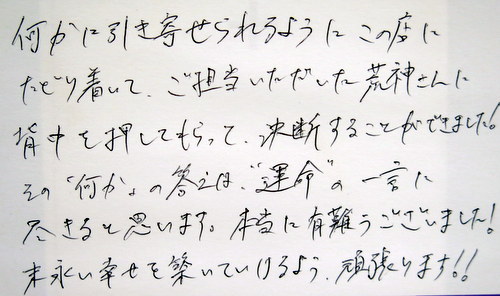 何かに引き寄せられるようにこの度に
たどり着いて、ご担当いただいた荒神さんに
背中を押してもらって、決断することができました!
その“何か„の答えは、“運命„の一言に
尽きると思います。本当に有難うございました!
末永い幸せを築いていけるよう、頑張ります!!